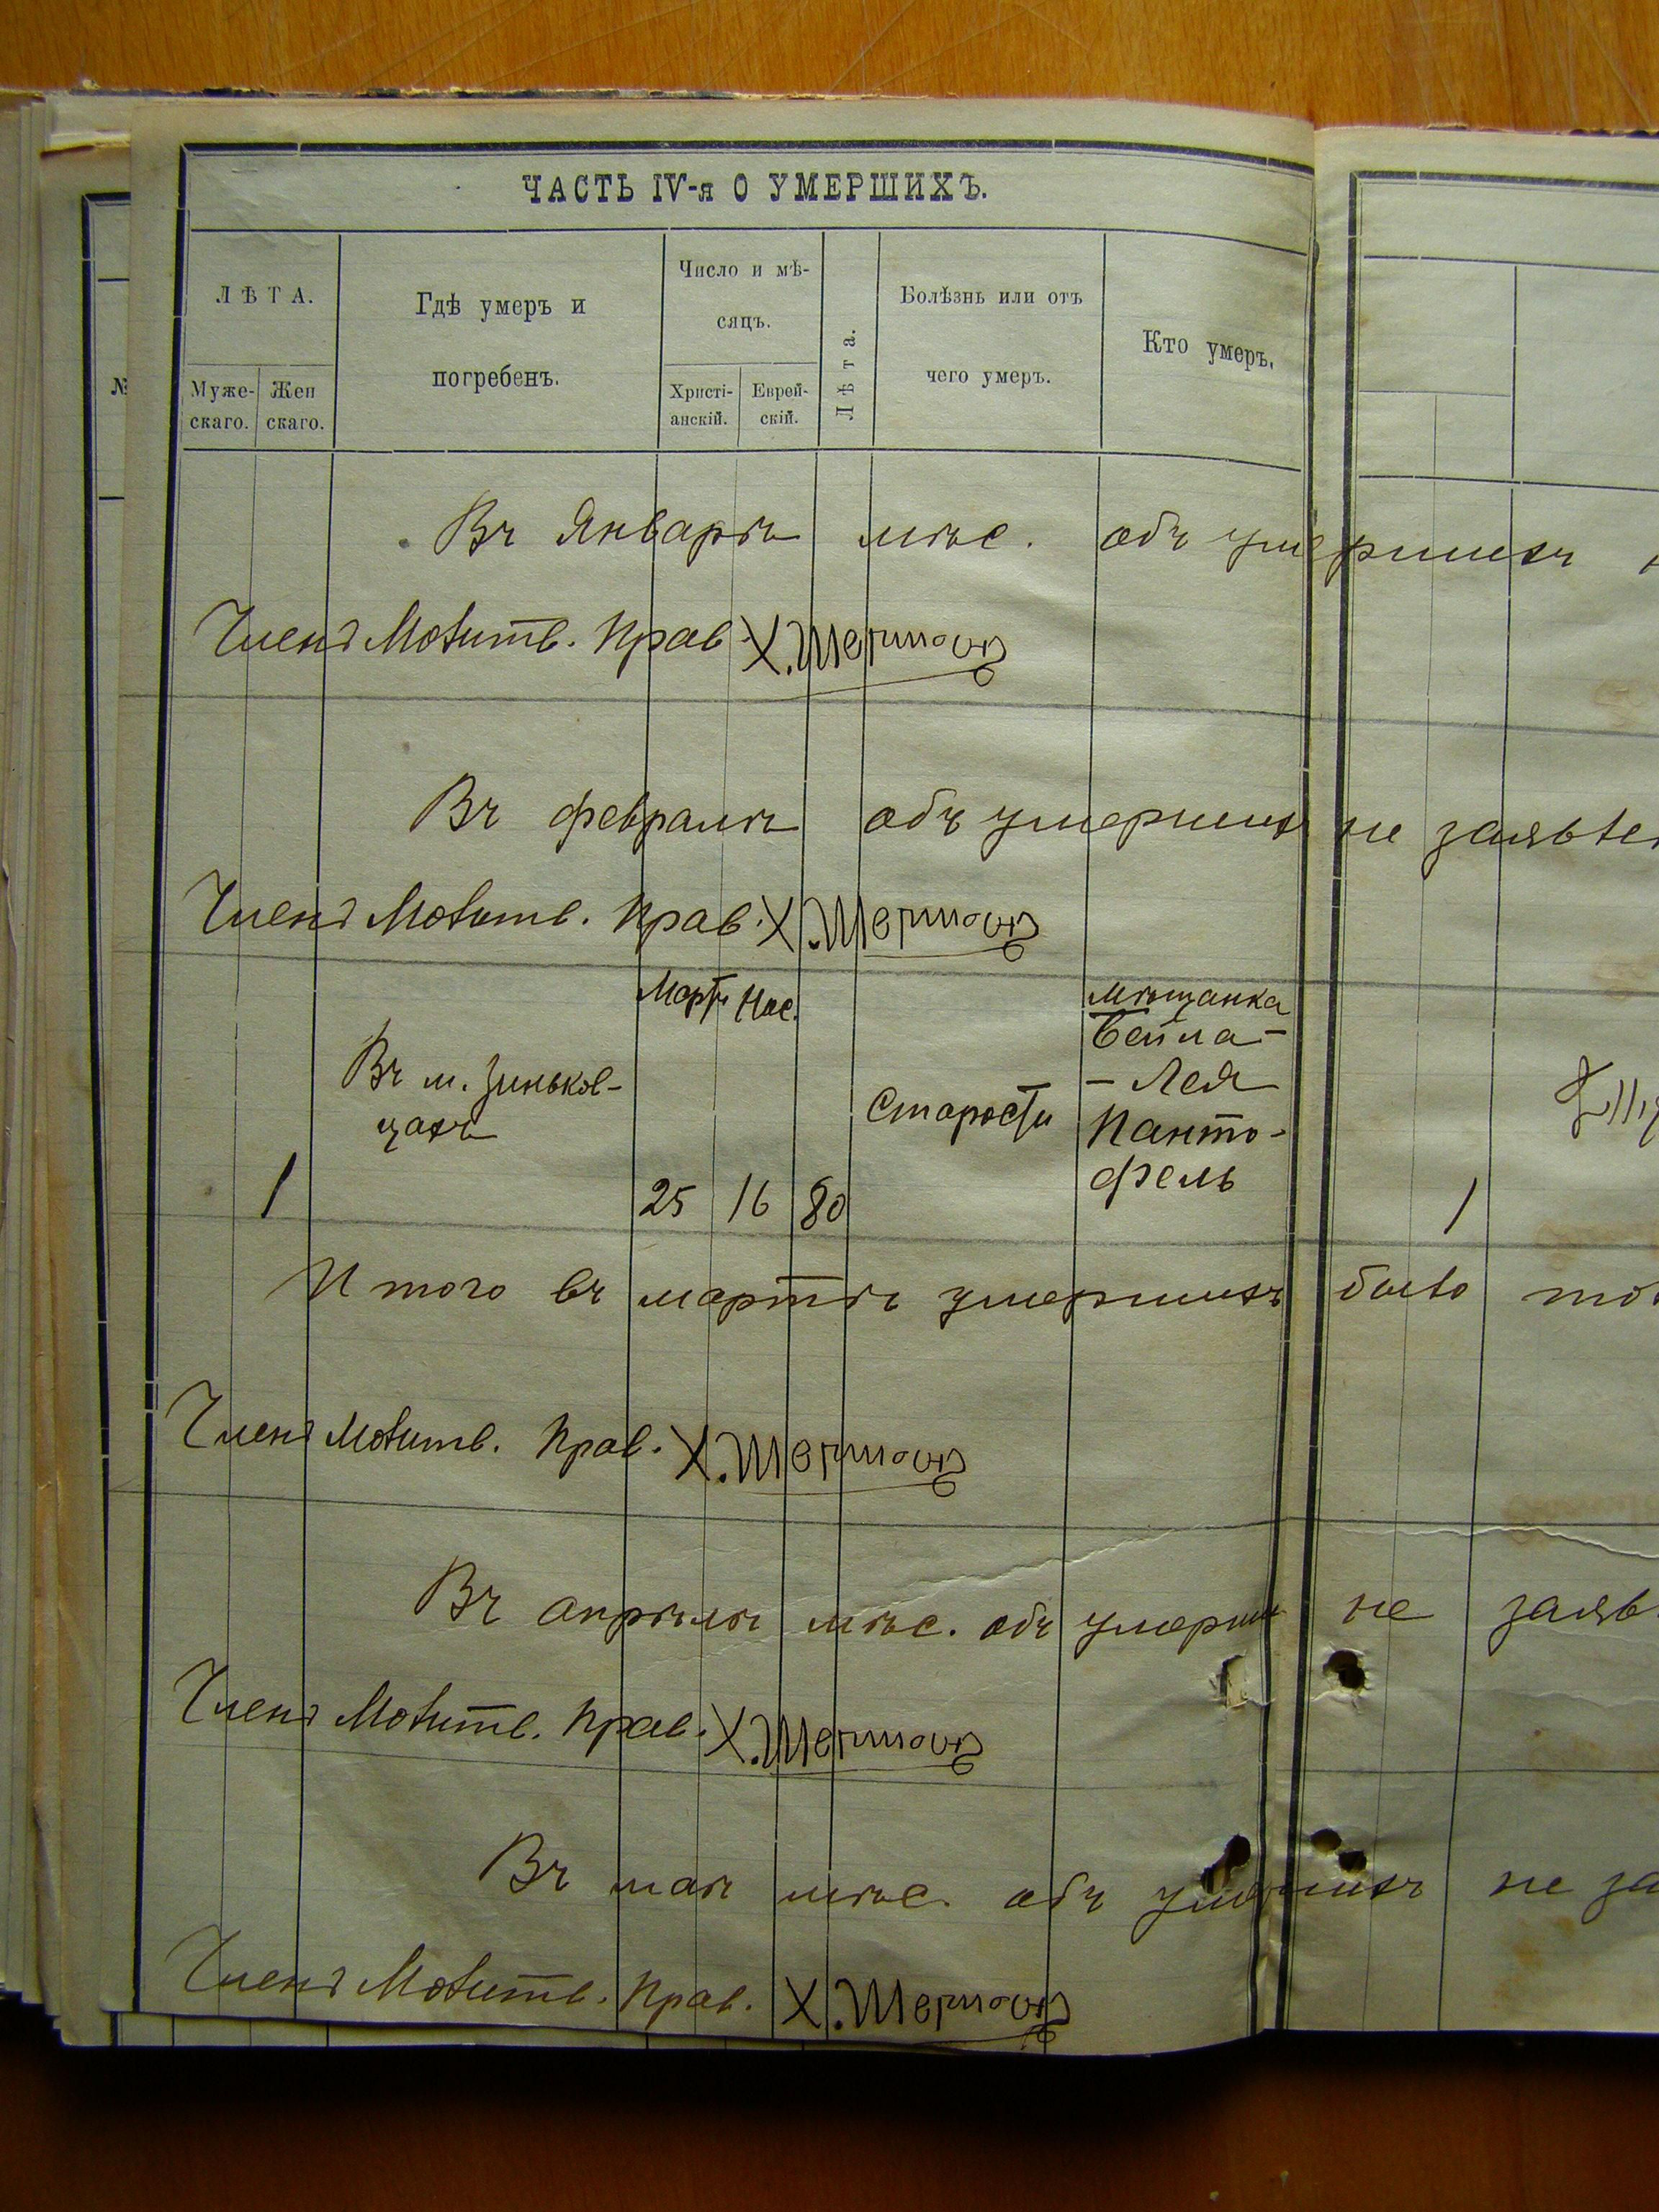 ЧАСТЬ IV-я О УМЕРШИХЪ.
ЛѢТА.
Муже-
скаго.
Жен
скаго.
Гдѣ умеръ и
погребенъ.
Число и мѣ-
сяцъ.
Христі-
анскій.
Еврей-
скій.
Лѣта.
Болѣзнь или отъ
чего умеръ.
Кто умеръ.
№
Въ Январѣ мѣс. объ умершихъ
Членъ Молитв. Прав. Х.
Въ февралѣ объ умершихъ не заявлен
Членъ Молитв. Прав. Х.
Мартъ Нис.
Въ м. Зиньков-
цахъ
Старости
мѣщанка
Бейла-
-Лея
Панто-
фель
1 25 16 80 1
Итого въ мартѣ умершихъ было
Членъ Молитв. Прав. Х.
Въ апрѣлѣ мѣс. объ умерших не заяв
Членъ Молитв. Прав. Х.
Въ маѣ мѣс. объ умершихъ не за
Членъ Молитв. Прав. Х.